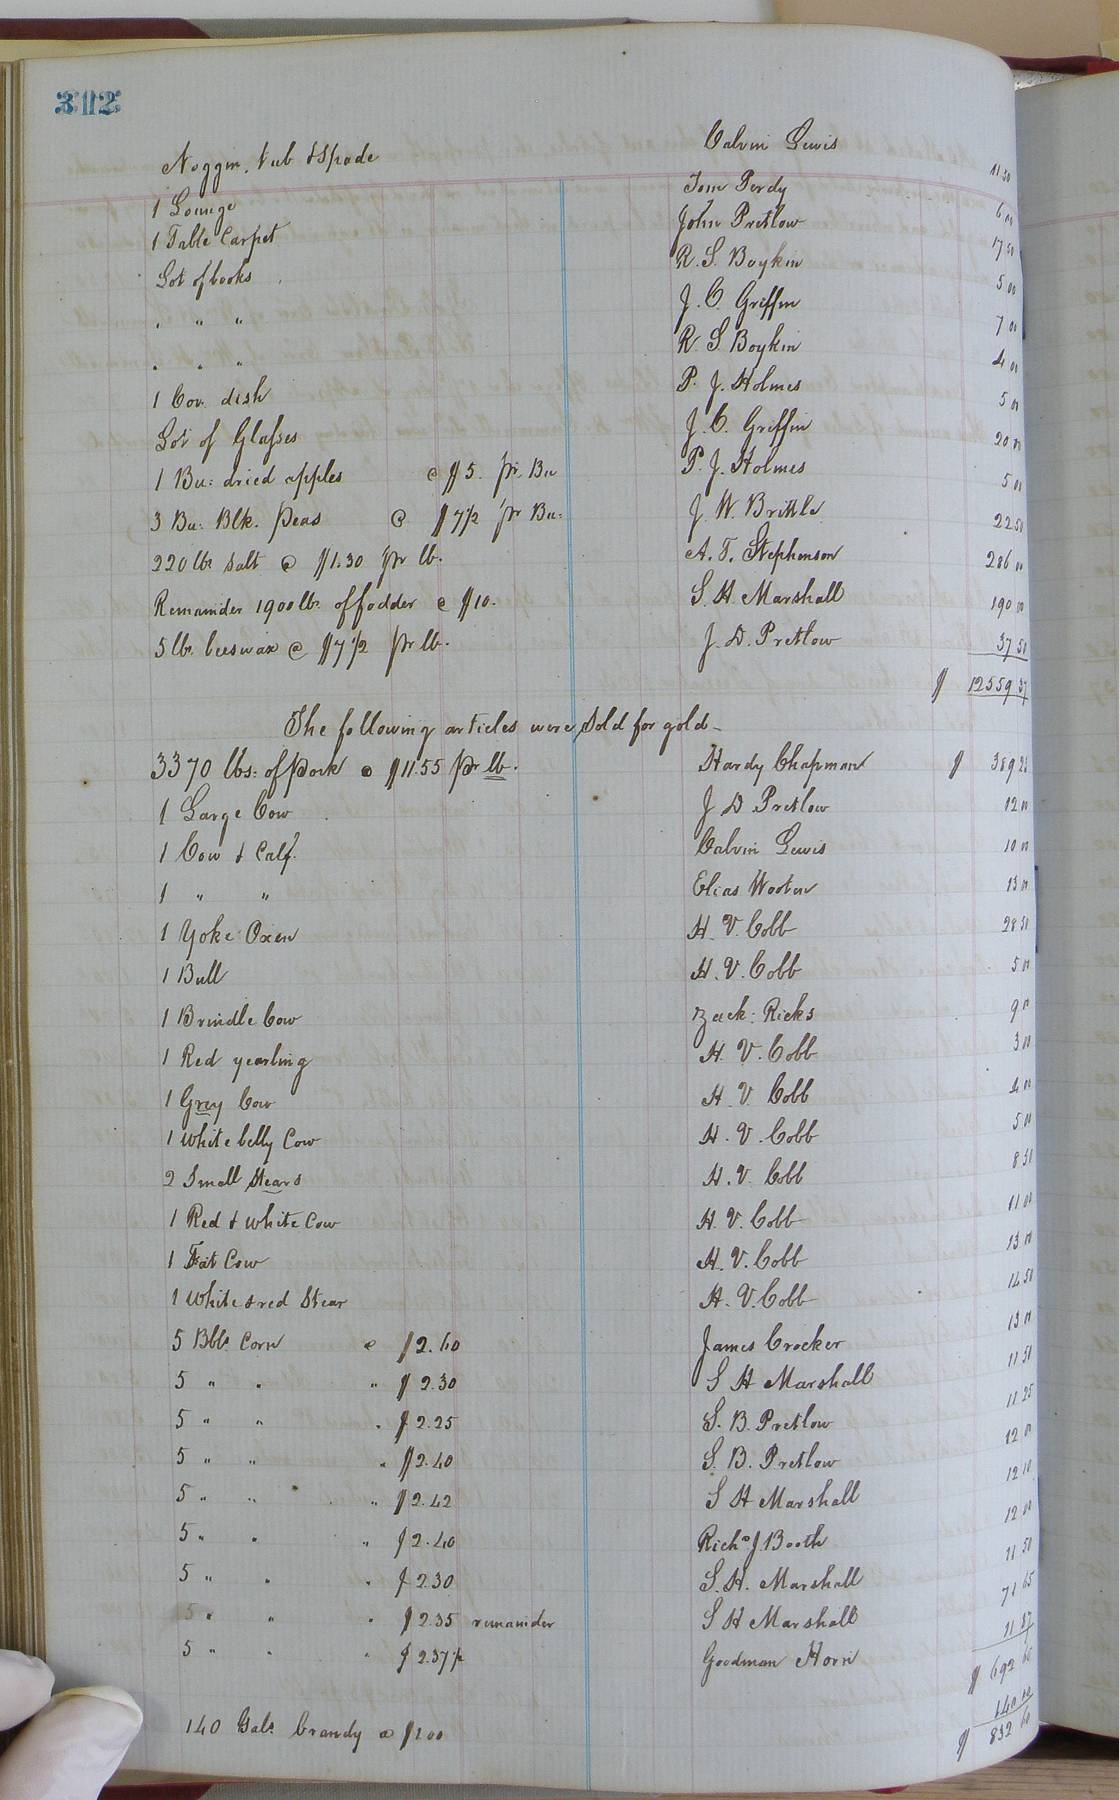 312
Noggin, tub & Spade Calvin Lewis 11.50
1 Lounge Tom Perdy 6 00
1 Table Carpet John Pretlow 17 50
Lot of books R. S. Boykin 5 00
" " " J. C. Griffin 7 00
" " " R. S. Boykin 4 00
1 Cov. dish P. J. Holmes 5 00
Lot of Glasses J. C. Griffin 20 00
1 Bu: dried apples @ $5. pr. Bu P. J. Holmes 5 00
3 Bu: Blk. Peas @ $7 1/2 pr Bu: J. W. Brittle 22 50
220 lbs salt @ $1.30 pr lb. A. T. Stephenson 286 00
Remainder 1900 lbs. of fodder @ $10. S. H. Marshall 190 00
5 lbs. beeswax @ $7 1/2 pr lb. J. D. Pretlow 37 50
$ 12559 37
The following articles were sold for gold
3370 lbs: of pork @ $11.55 pr lb. Hardy Chapman $ 389 23
1 Large Cow J D Pretlow 12 00
1 Cow & Calf. Calvin Lewis 10 00
1 " " Elias Wooten 13 00
1 Yoke Oxen H. V. Cobb 28 50
1 Bull H. V. Cobb 5 00
1 Brindle Cow Zack: Ricks 9 00
1 Red yearling H. V. Cobb 3 00
1 Grey Cow H. V. Cobb 4 00
1 White belly Cow H. V. Cobb 5 00
2 Small Stears H. V. Cobb 8 50
1 Red & White Cow H. V. Cobb 11 00
1 Fat Cow H. V. Cobb 13 00
1 White & red Stear H. V. Cobb 14 50
5 Bbls. Corn @ $2.60 James Crocker 13 00
5 " " " $2.30 S H Marshall 11 50
5 " " " $2.25 S. B. Pretlow 11 25
5 " " " $2.40 S. B. Pretlow 12 00
5 " " " $2.42 S H Marshall 12 10
5 " " " $2.40 Richd J. Booth 12 00
5 " " " $2.30 S. H. Marshall 11 50
5 " " " $2.35 remainder S H Marshall 71 65
5 " " " $2.37 1/2 Goodman Horn 11 87
$ 692 60
140 Gals. brandy @ $1.00 140 00
$ 832 60